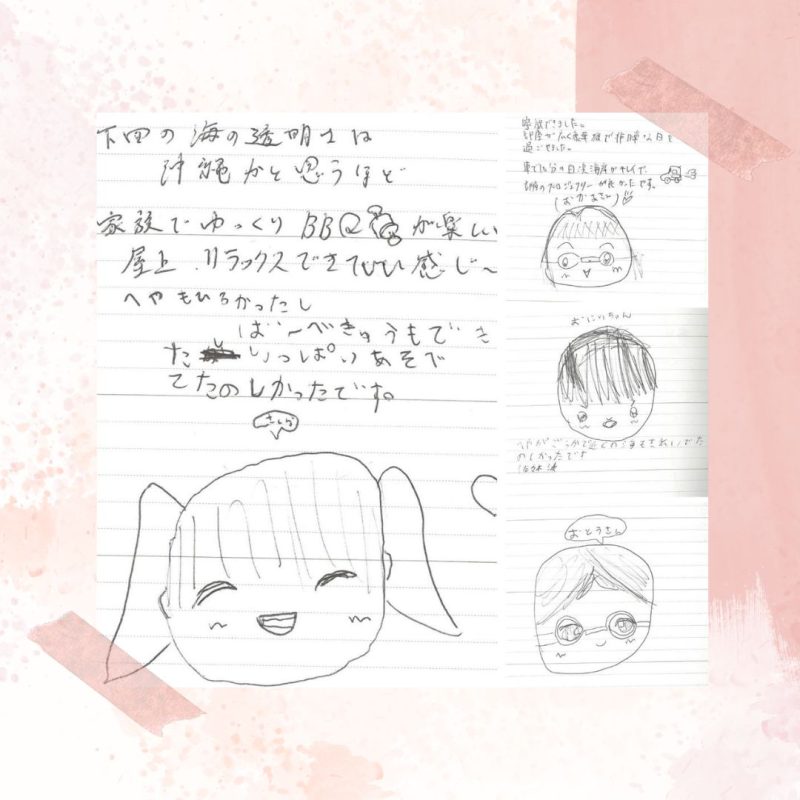 下田の海の透明さは
沖縄かと思うほど
家族でゆっくりBBQが楽しい
屋上.リラックスできていい感じ〜
へやもひろかったし
ばーべきゅうもでき
たしいっぱいあそべ
てたのしかったです。
家族できました。
部屋が広く豪華
過ごせました。
車で10分の白浜海岸がキレイで、
のプロジェクターが良かったです。
(おかあさん)
おにいちゃん
へやがごうかで近くの海もきれいでた
のしかったです
おとうさん